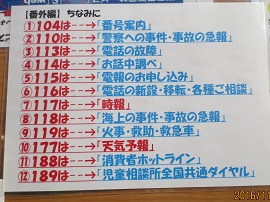 【番外編】ちなみに
①104は---→「番号案内」
②110は---→「警察への事件・事故の急報」
③113は---→「電話の故障」
④114は---→「お話中調べ」
⑤115は---→「電報のお申し込み」
⑥116は---→「電話の新設・移転・各種ご相談」
⑦117は---→「時報」
⑧118は---→「海上の事件・事故の急報」
⑨119は---→「火事・救助・救急車」
⑩177は---→「天気予報」
⑪188は---→「消費者ホットライン」
⑫189は---→「児童相談所全国共通ダイヤル」
2016/11